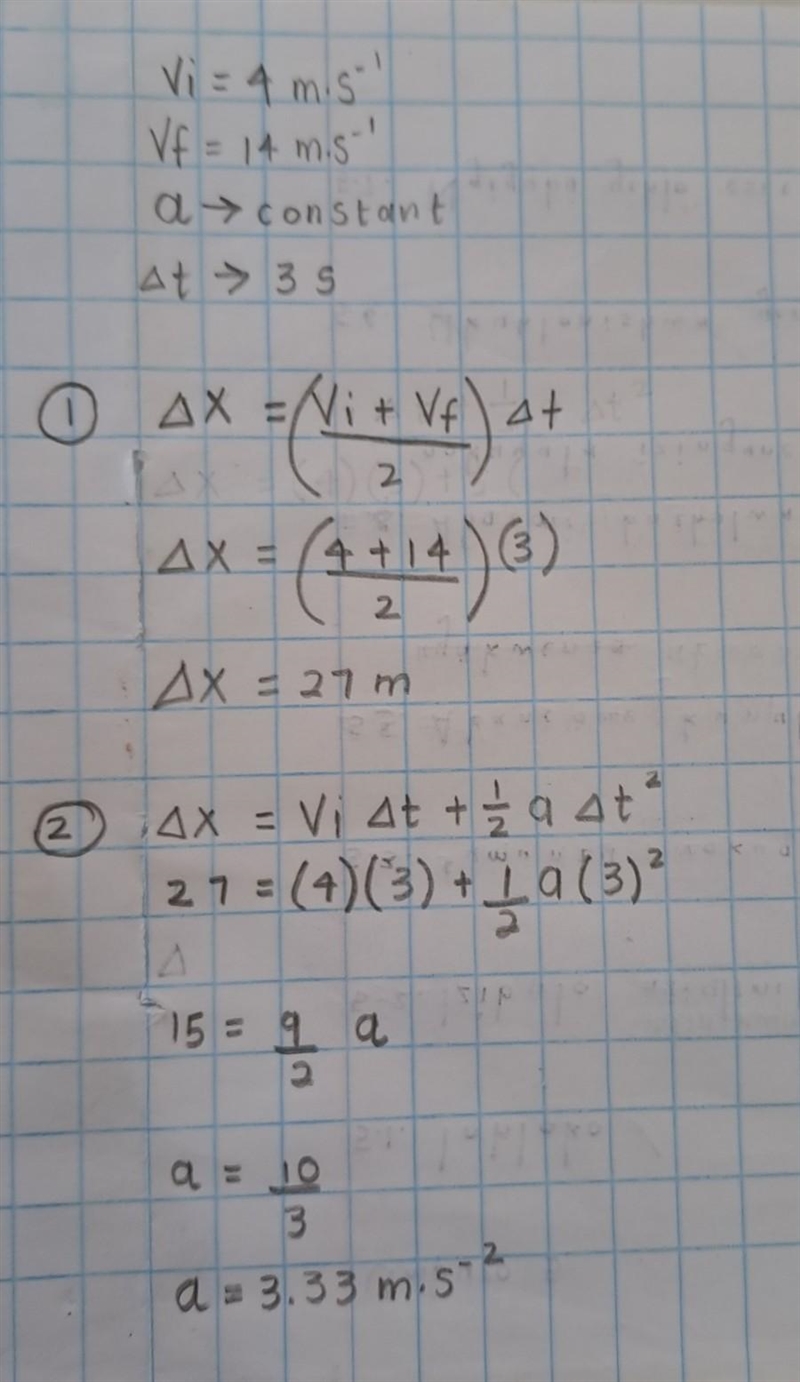 Vi = 4 m.s⁻¹
Vf = 14 m.s⁻¹
a → constant
Δt → 3 s
① ΔX = (Vi + Vf / 2) Δt
ΔX = (4 + 14 / 2)(3)
ΔX = 27 m
② ΔX = Vi Δt + 1/2 a Δt²
27 = (4)(3) + 1/2 a (3)²
Δ
15 = 9/2 a
a = 10/3
a = 3.33 m.s⁻²